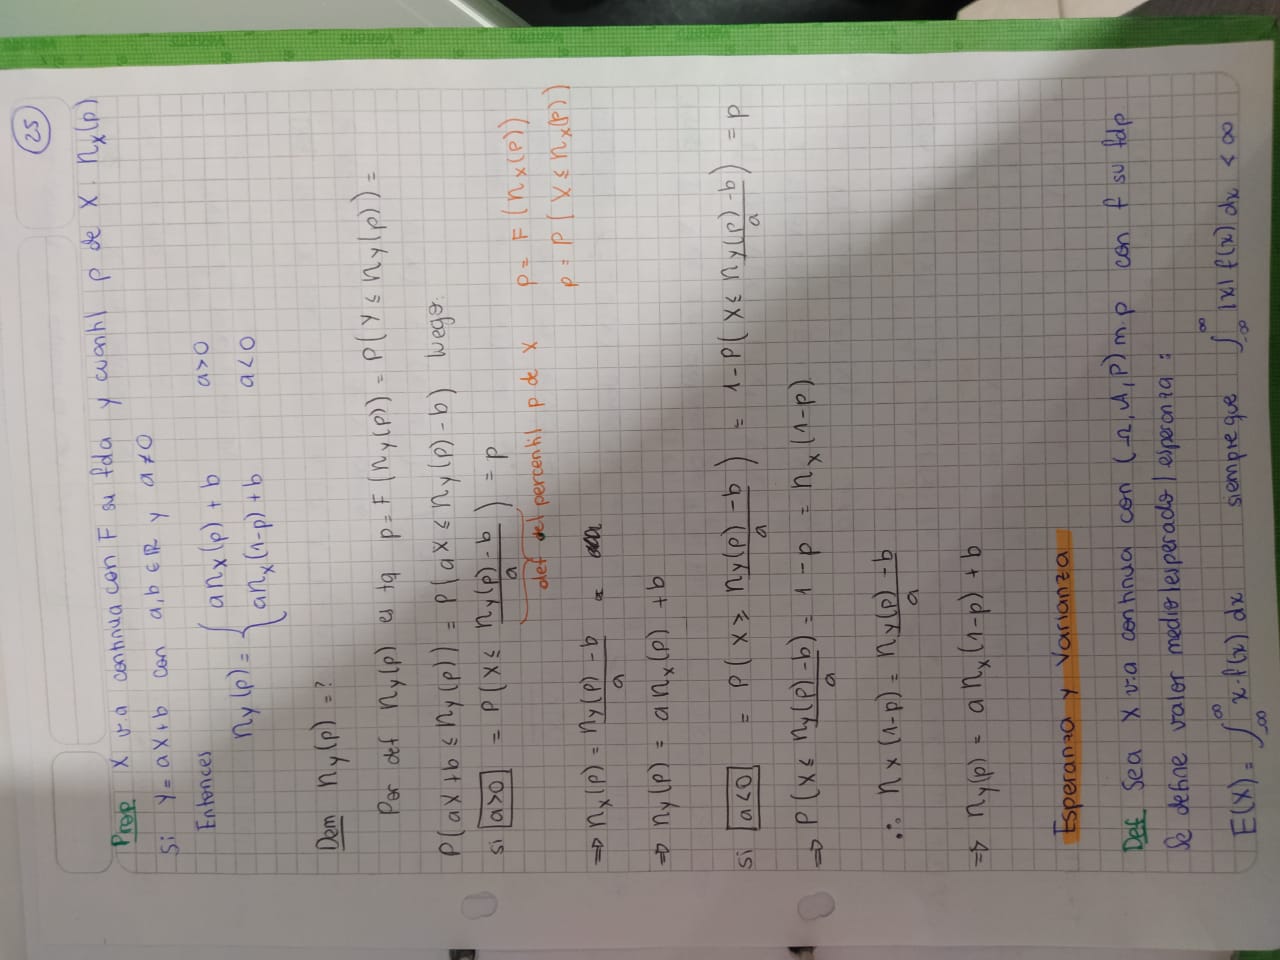 25
Prop X v.a continua con F su fda y cuantil p de X. ηx(p)
Si Y = aX+b con a,b ∈ ℝ y a≠0
Entonces
ηy(p) = { aηx(p) + b a>0
aηx(1-p) + b a<0
Dem ηy(p) = ?
Por def ηy(p) es tq p = F(ηy(p)) = P(Y ≤ ηy(p)) =
P(aX+b ≤ ηy(p)) = P(aX ≤ ηy(p) - b) luego:
si a>0 = P(X ≤ (ηy(p) - b)/a) = p
def del percentil p de X
p = F(ηx(p))
p = P(X ≤ ηx(p))
⇒ ηx(p) = (ηy(p) - b)/a
⇒ ηy(p) = aηx(p) + b
si a<0 = P(X ≥ (ηy(p) - b)/a) = 1 - P(X ≤ (ηy(p) - b)/a) = p
⇒ P(X ≤ (ηy(p) - b)/a) = 1 - p = ηx(1-p)
∴ ηx(1-p) = (ηy(p) - b)/a
⇒ ηy(p) = aηx(1-p) + b
Esperanza y Varianza
Def Sea X v.a continua con (Ω, A, P) m.p con f su fdp
Se define valor medio/esperado/esperanza:
E(X) = ∫_{-∞}^{∞} x·f(x) dx siempre que ∫_{-∞}^{∞} |x| f(x) dx < ∞